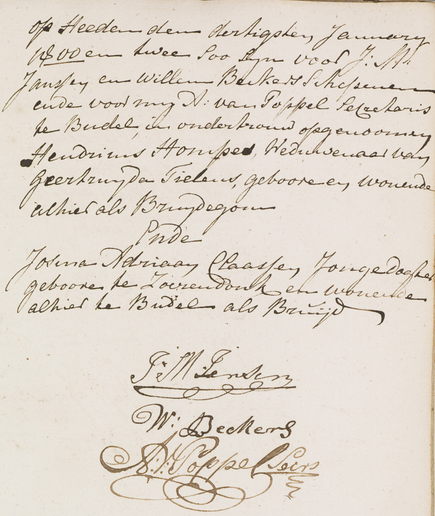 op Heeden den dertigsten January
1800 en twee soo syn voor J: M:
Jansen en Willem Beckers Schepenen
ende voor my A: van Poppel Secretaris
te Budel, in ondertrouw opgenoomen
Hendrinus Hompes, Weduwenaar van
Geertruyda Tielens, geboore en wonende
alhier als Bruydegom
Ende
Josina Adriaan Claassen Jonge Dogter
geboore te Zoerendonk en wonende
alhier te Budel als Bruijd
J: M: Jansen
W: Beckers
A: v: Poppel Secrs